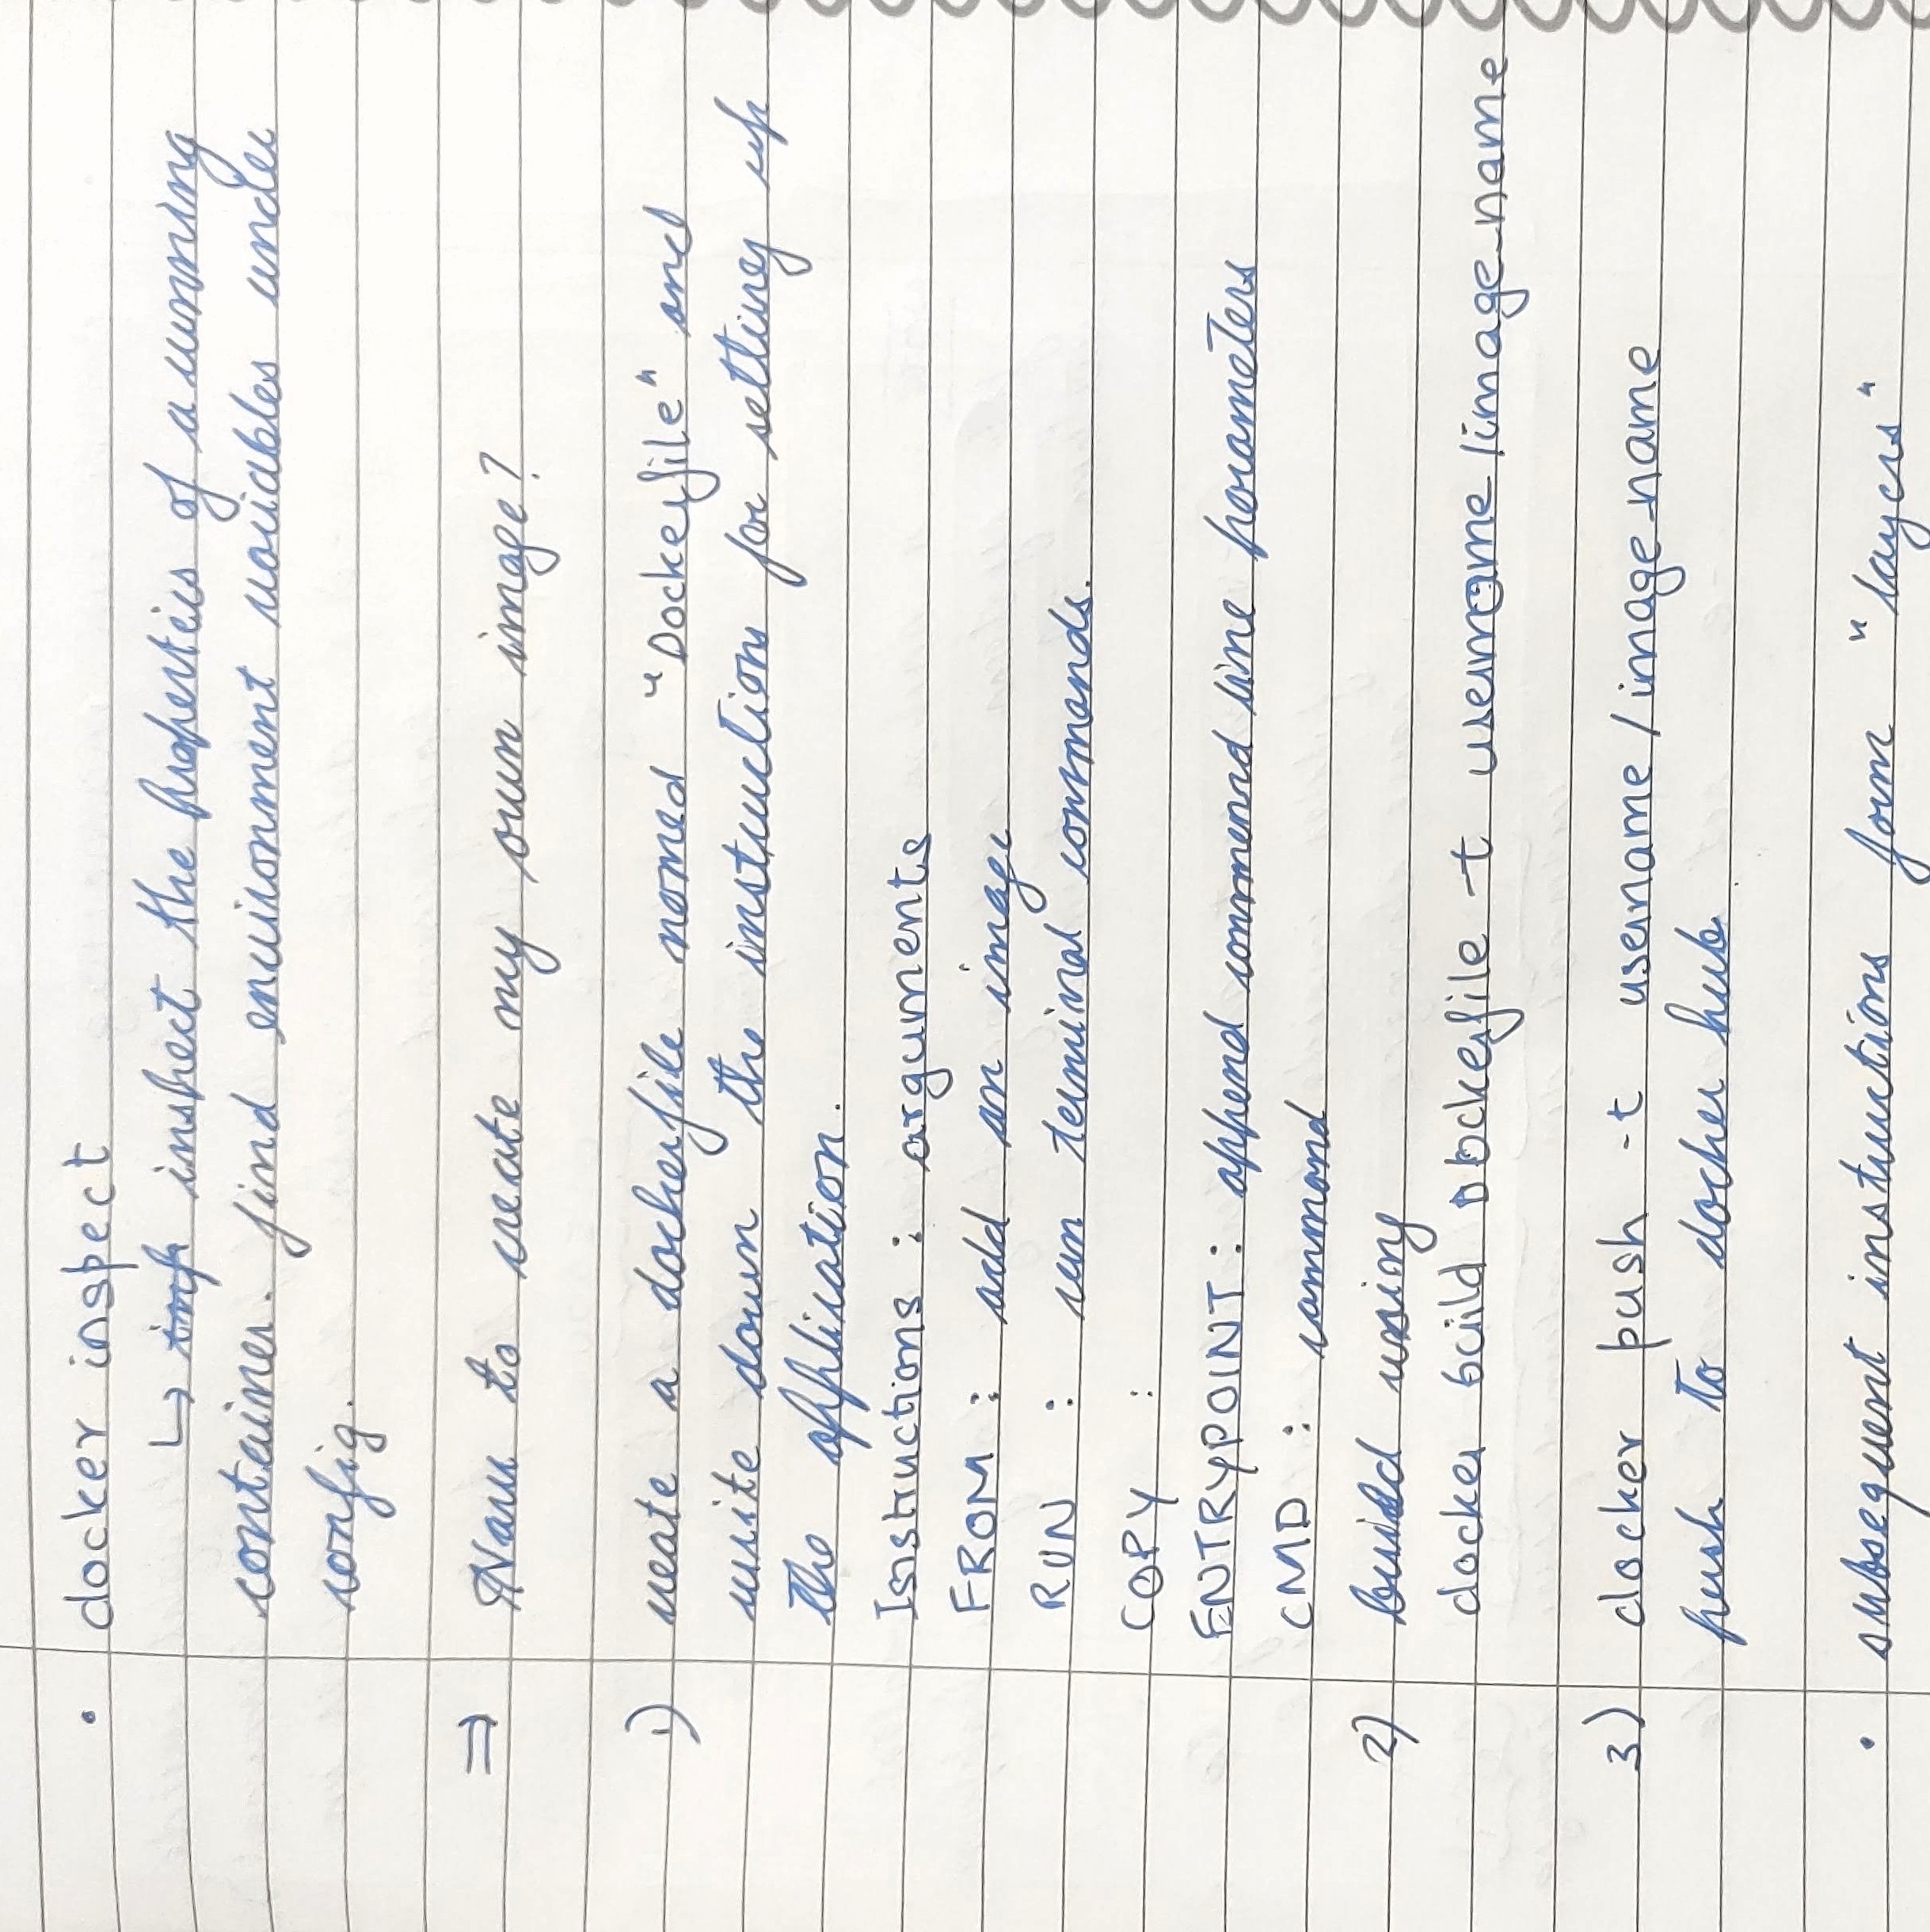 • docker inspect
↳ inspect the properties of a running
container. find environment variables under
config.
⇒ How to create my own image?
1) create a dockerfile named "Dockerfile" and
write down the instructions for setting up
the application.
Instructions : arguments
FROM : add an image
RUN : run terminal commands.
COPY :
ENTRYPOINT : append command line parameters
CMD : command
2) build using
docker build Dockerfile -t username/image_name
3) docker push -t username/image_name
push to docker hub
• subsequent instructions form "layers"